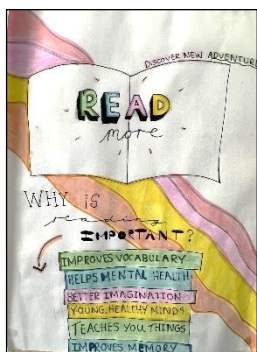 DISCOVER NEW ADVENTURE
READ
more
WHY IS
reading
IMPORTANT?
IMPROVES VOCABULARY
HELPS MENTAL HEALTH
BETTER IMAGINATION
YOUNG, HEALTHY MINDS
TEACHES YOU THINGS
IMPROVES MEMORY